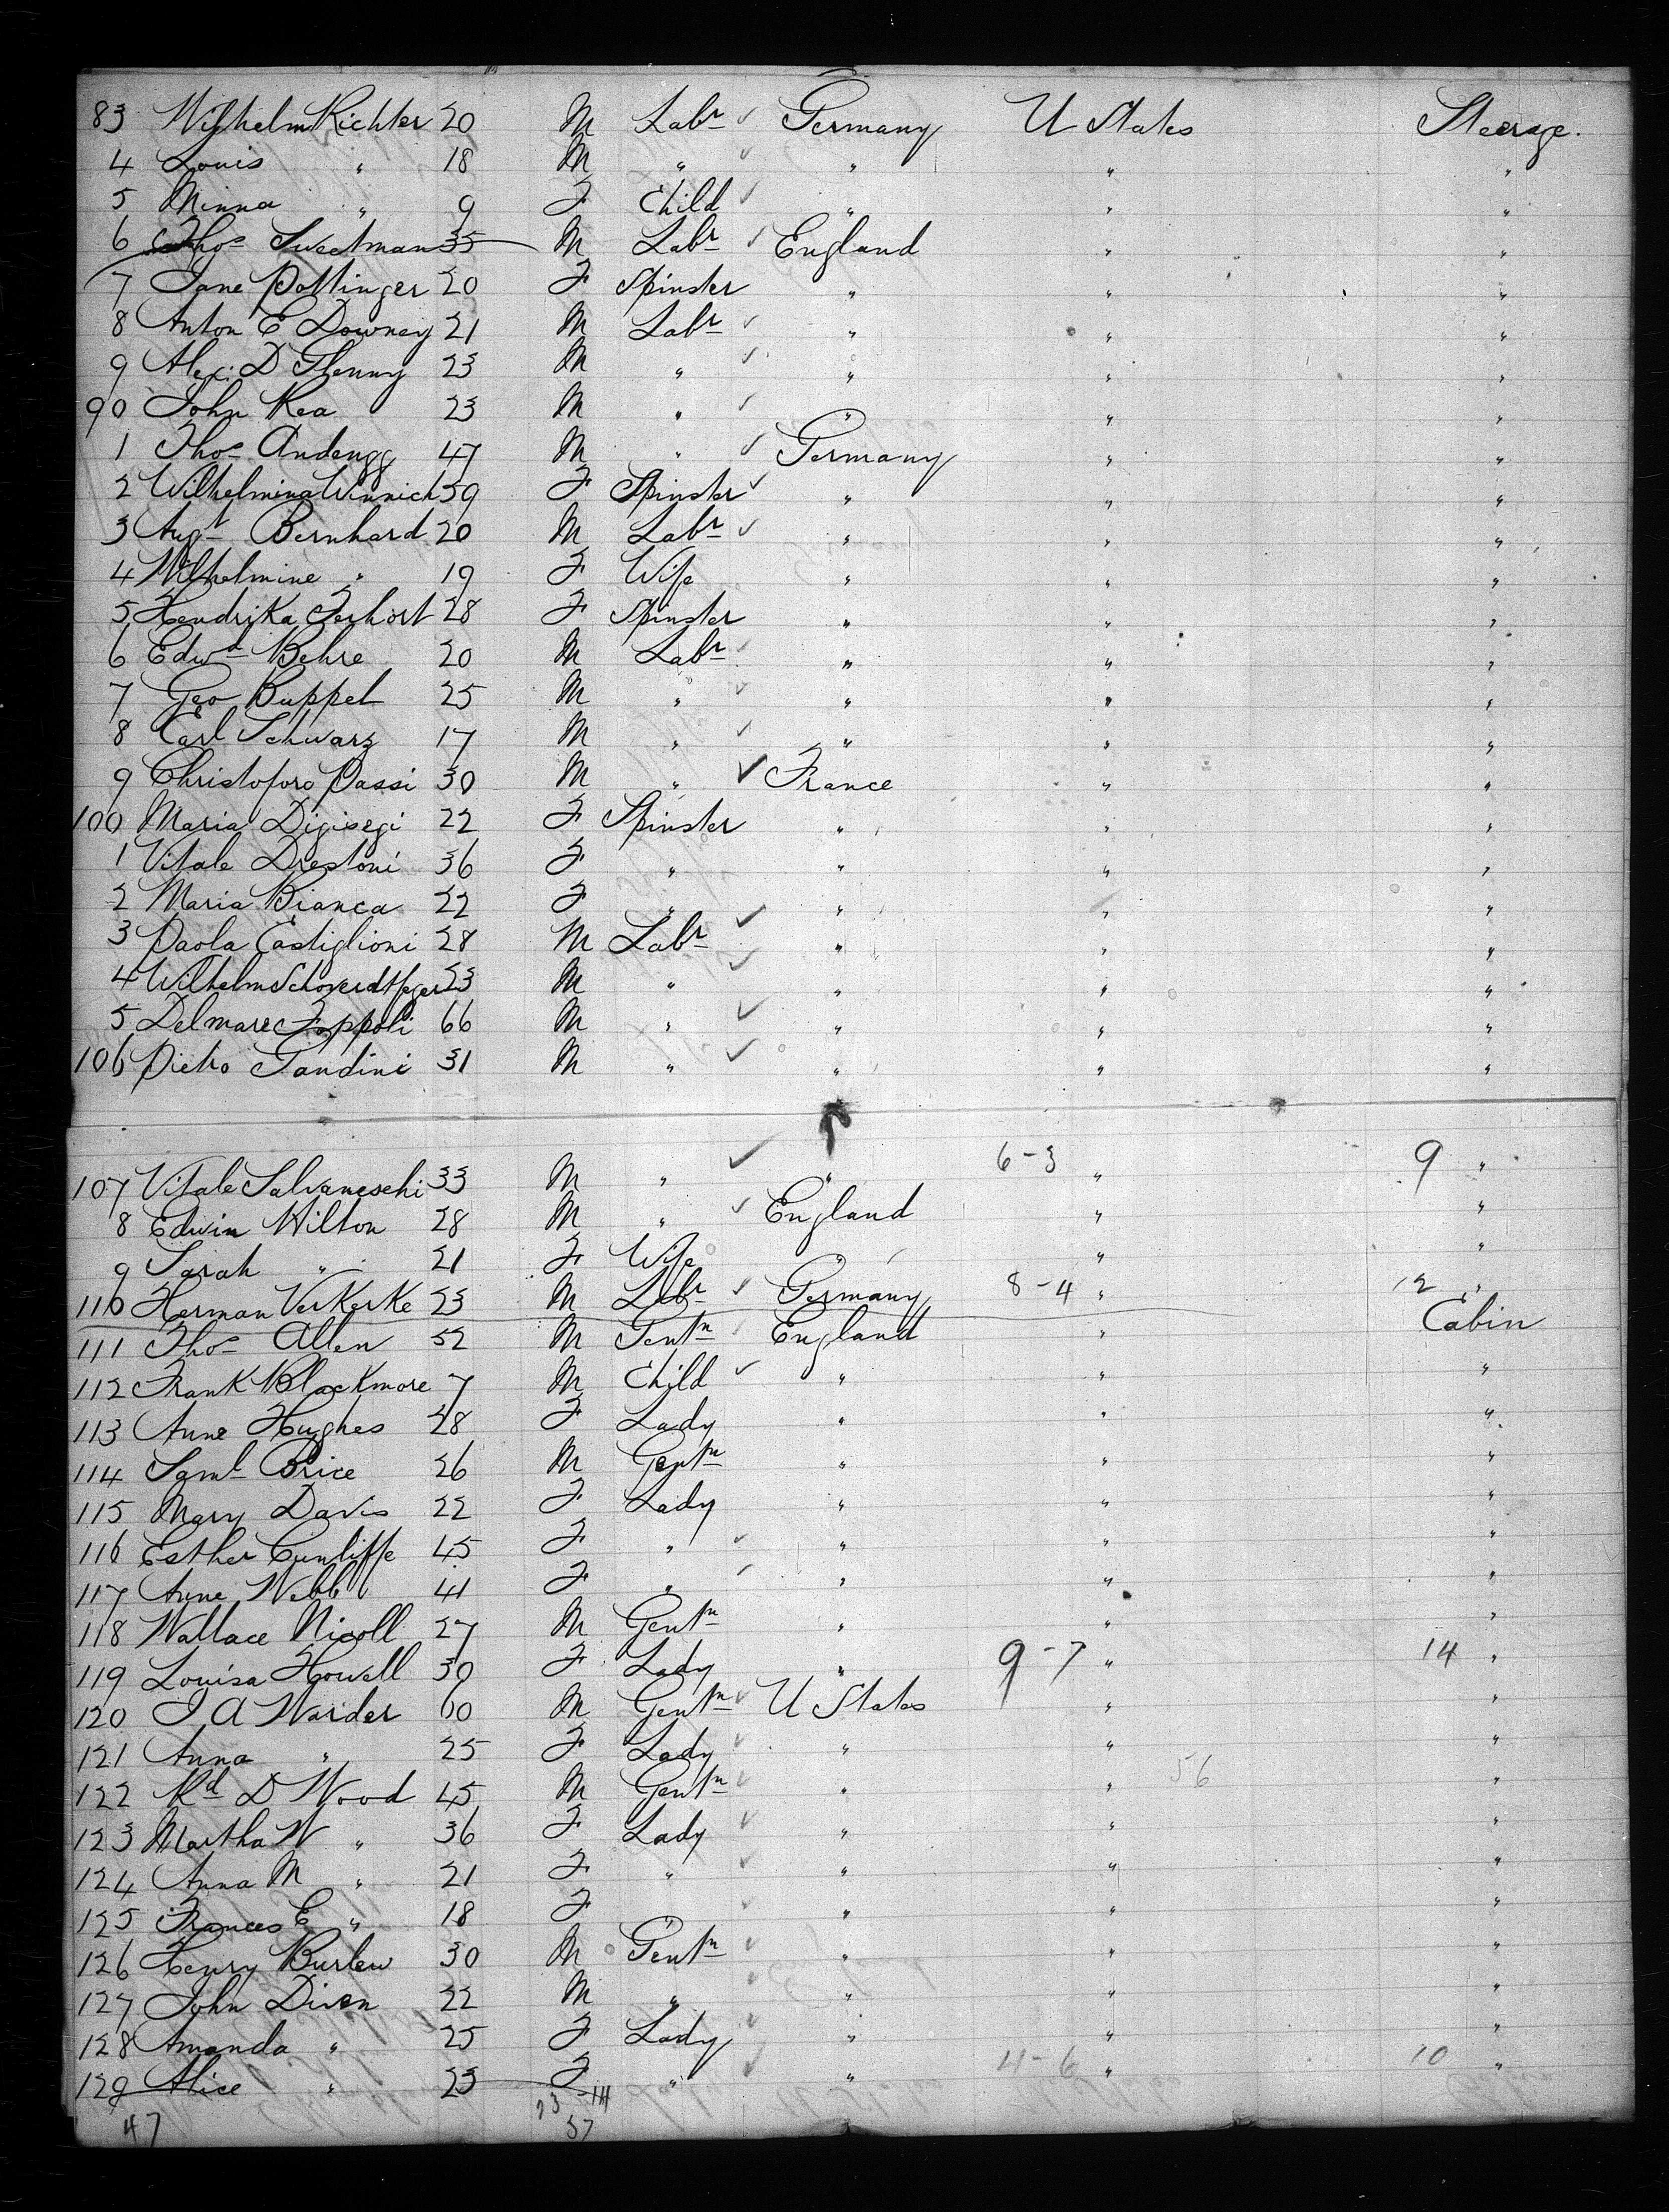 83 Wilhelm Richter 20 M Labr Germany U States Steerage.
4 Louis " 18 M " " " "
5 Minna " 9 F Child " " "
6 Thos Sweetman 35 M Labr England " "
7 Jane Pottinger 20 F Spinster " " "
8 Anton E Downey 21 M Labr " " "
9 Alex. D Glenny 23 M " " " "
90 John Rea 23 M " " " "
1 Thos Andengg 47 M " Germany " "
2 Wilhelmina Winnich 59 F Spinster " " "
3 Augt Bernhard 20 M Labr " " "
4 Wilhelmine " 19 F Wife " " "
5 Hendrika Terhort 28 F Spinster " " "
6 Edwd Behre 20 M Labr " " "
7 Geo Buppel 25 M " " " "
8 Carl Schwarz 17 M " " " "
9 Christoforo Passi 30 M " France " "
100 Maria Digisegi 22 F Spinster " " "
1 Vitale Drestoni 36 F " " " "
2 Maria Bianca 22 F " " " "
3 Paola Castiglioni 28 M Labr " " "
4 Wilhelm Schoverdtfeger 23 M " " " "
5 Delmare Zoppoli 66 M " " " "
106 Pietro Tandini 31 M " " " "
107 Vitale Salvaneschi 33 M " " 6-3 " 9 "
8 Edwin Hilton 28 M " England " "
9 Sarah " 21 F Wife " " "
110 Herman VerKerke 23 M Labr Germany 8-4 " 12 "
111 Thos Allen 52 M Gentn England " Cabin
112 Frank Blackmore 7 M Child " " "
113 Anne Hughes 28 F Lady " " "
114 Saml Price 26 M Gentn " " "
115 Mary Davis 22 F Lady " " "
116 Esther Cunliffe 45 F " " " "
117 Anne Webb 41 F " " " "
118 Wallace Nicoll 27 M Gentn " " "
119 Louisa Howell 30 F Lady " 9-7 " 14 "
120 J A Warder 60 M Gentn U States " "
121 Anna " 25 F Lady " " "
122 Rd D Wood 45 M Gentn " " 56 "
123 Martha W " 36 F Lady " " "
124 Anna M " 21 F " " " "
125 Frances E " 18 F " " " "
126 Henry Burlew 30 M Gentn " " "
127 John Diven 22 M " " " "
128 Amanda " 25 F Lady " " "
129 Alice " 23 F " " 4-6 " 10 "
47 23-14
57